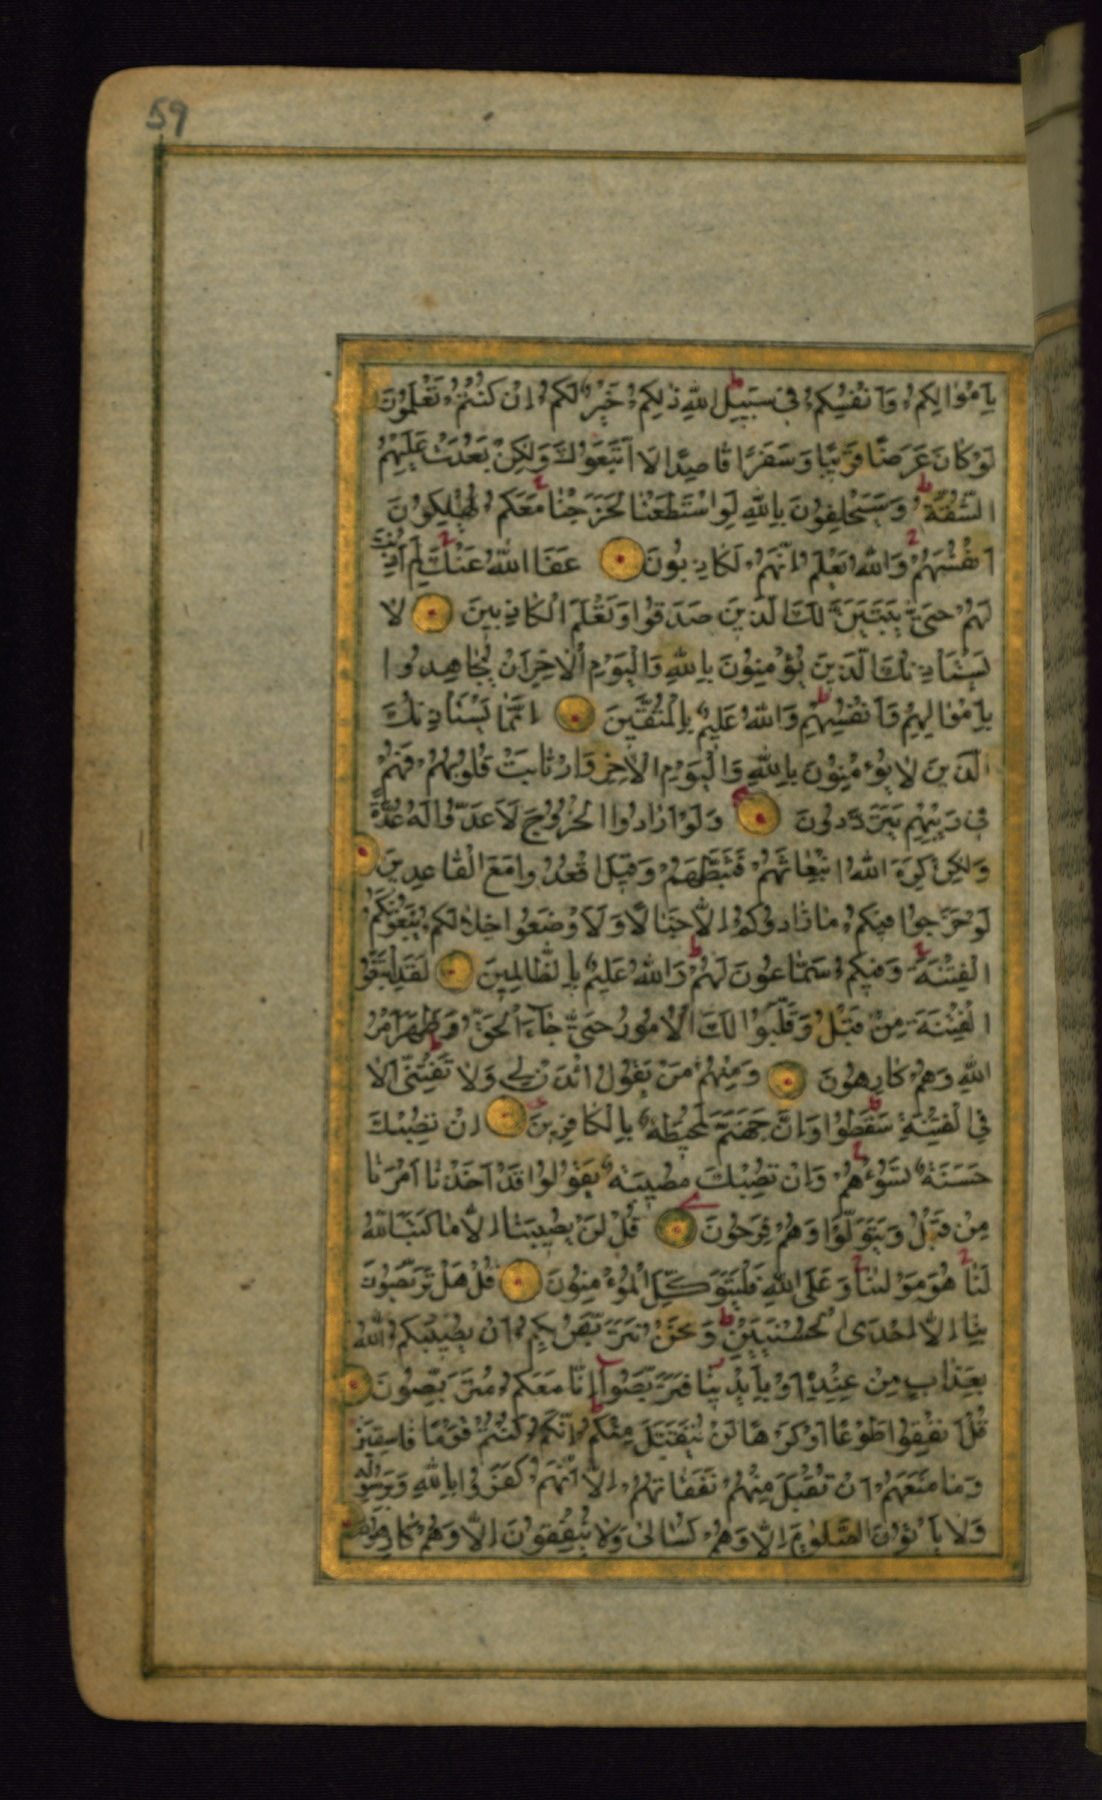 59
بِاَمْوَالِكُمْ وَاَنْفُسِكُمْ فِى سَبِيْلِ اللّٰهِ ذٰلِكُمْ خَيْرٌ لَكُمْ اِنْ كُنْتُمْ تَعْلَمُوْنَ
لَوْ كَانَ عَرَضًا قَرِيْبًا وَسَفَرًا قَاصِدًا لَاتَّبَعُوْكَ وَلٰكِنْ بَعُدَتْ عَلَيْهِمُ
الشُّقَّةُ ط وَسَيَحْلِفُوْنَ بِاللّٰهِ لَوِ اسْتَطَعْنَا لَخَرَجْنَا مَعَكُمْ ج يُهْلِكُوْنَ
اَنْفُسَهُمْ ج وَاللّٰهُ يَعْلَمُ اِنَّهُمْ لَكَاذِبُوْنَ عَفَا اللّٰهُ عَنْكَ ج لِمَ اَذِنْتَ
لَهُمْ حَتّٰى يَتَبَيَّنَ لَكَ الَّذِيْنَ صَدَقُوْا وَتَعْلَمَ الْكَاذِبِيْنَ لَا
يَسْتَاْذِنُكَ الَّذِيْنَ يُؤْمِنُوْنَ بِاللّٰهِ وَالْيَوْمِ الْاٰخِرِ اَنْ يُجَاهِدُوْا
بِاَمْوَالِهِمْ وَاَنْفُسِهِمْ ط وَاللّٰهُ عَلِيْمٌ بِالْمُتَّقِيْنَ اِنَّمَا يَسْتَاْذِنُكَ
الَّذِيْنَ لَا يُؤْمِنُوْنَ بِاللّٰهِ وَالْيَوْمِ الْاٰخِرِ وَارْتَابَتْ قُلُوْبُهُمْ فَهُمْ
فِى رَيْبِهِمْ يَتَرَدَّدُوْنَ وَلَوْ اَرَادُوا الْخُرُوْجَ لَاَعَدُّوْا لَهُ عُدَّةً
وَلٰكِنْ كَرِهَ اللّٰهُ انْبِعَاثَهُمْ فَثَبَّطَهُمْ وَقِيْلَ اقْعُدُوْا مَعَ الْقَاعِدِيْنَ
لَوْ خَرَجُوْا فِيْكُمْ مَا زَادُوْكُمْ اِلَّا خَبَالًا وَلَاَوْضَعُوْا خِلَالَكُمْ يَبْغُوْنَكُمُ
الْفِتْنَةَ ج وَفِيْكُمْ سَمَّاعُوْنَ لَهُمْ ط وَاللّٰهُ عَلِيْمٌ بِالظَّالِمِيْنَ لَقَدِ ابْتَغَوُا
الْفِتْنَةَ مِنْ قَبْلُ وَقَلَّبُوْا لَكَ الْاُمُوْرَ حَتّٰى جَآءَ الْحَقُّ وَظَهَرَ اَمْرُ
اللّٰهِ وَهُمْ كَارِهُوْنَ وَمِنْهُمْ مَنْ يَقُوْلُ ائْذَنْ لِى وَلَا تَفْتِنِّى ط اَلَا
فِى الْفِتْنَةِ سَقَطُوْا ط وَاِنَّ جَهَنَّمَ لَمُحِيْطَةٌ بِالْكَافِرِيْنَ اِنْ تُصِبْكَ
حَسَنَةٌ تَسُؤْهُمْ ج وَاِنْ تُصِبْكَ مُصِيْبَةٌ يَقُوْلُوْا قَدْ اَخَذْنَا اَمْرَنَا
مِنْ قَبْلُ وَيَتَوَلَّوْا وَهُمْ فَرِحُوْنَ قُلْ لَنْ يُصِيْبَنَا اِلَّا مَا كَتَبَ اللّٰهُ
لَنَا ج هُوَ مَوْلٰنَا ج وَعَلَى اللّٰهِ فَلْيَتَوَكَّلِ الْمُؤْمِنُوْنَ قُلْ هَلْ تَرَبَّصُوْنَ
بِنَا اِلَّا اِحْدَى الْحُسْنَيَيْنِ ط وَنَحْنُ نَتَرَبَّصُ بِكُمْ اَنْ يُصِيْبَكُمُ اللّٰهُ
بِعَذَابٍ مِنْ عِنْدِهِ اَوْ بِاَيْدِيْنَا فَتَرَبَّصُوْا اِنَّا مَعَكُمْ مُتَرَبِّصُوْنَ
قُلْ اَنْفِقُوْا طَوْعًا اَوْ كَرْهًا لَنْ يُتَقَبَّلَ مِنْكُمْ ط اِنَّكُمْ كُنْتُمْ قَوْمًا فَاسِقِيْنَ
وَمَا مَنَعَهُمْ اَنْ تُقْبَلَ مِنْهُمْ نَفَقَاتُهُمْ اِلَّا اَنَّهُمْ كَفَرُوْا بِاللّٰهِ وَبِرَسُوْلِهِ
وَلَا يَاْتُوْنَ الصَّلٰوةَ اِلَّا وَهُمْ كُسَالٰى وَلَا يُنْفِقُوْنَ اِلَّا وَهُمْ كَارِهُوْنَ